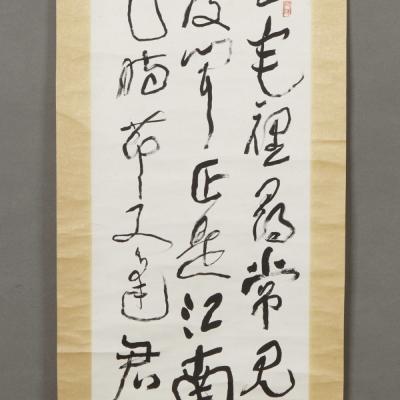 宅裡尋常見
度聞正是江南
時節又逢君